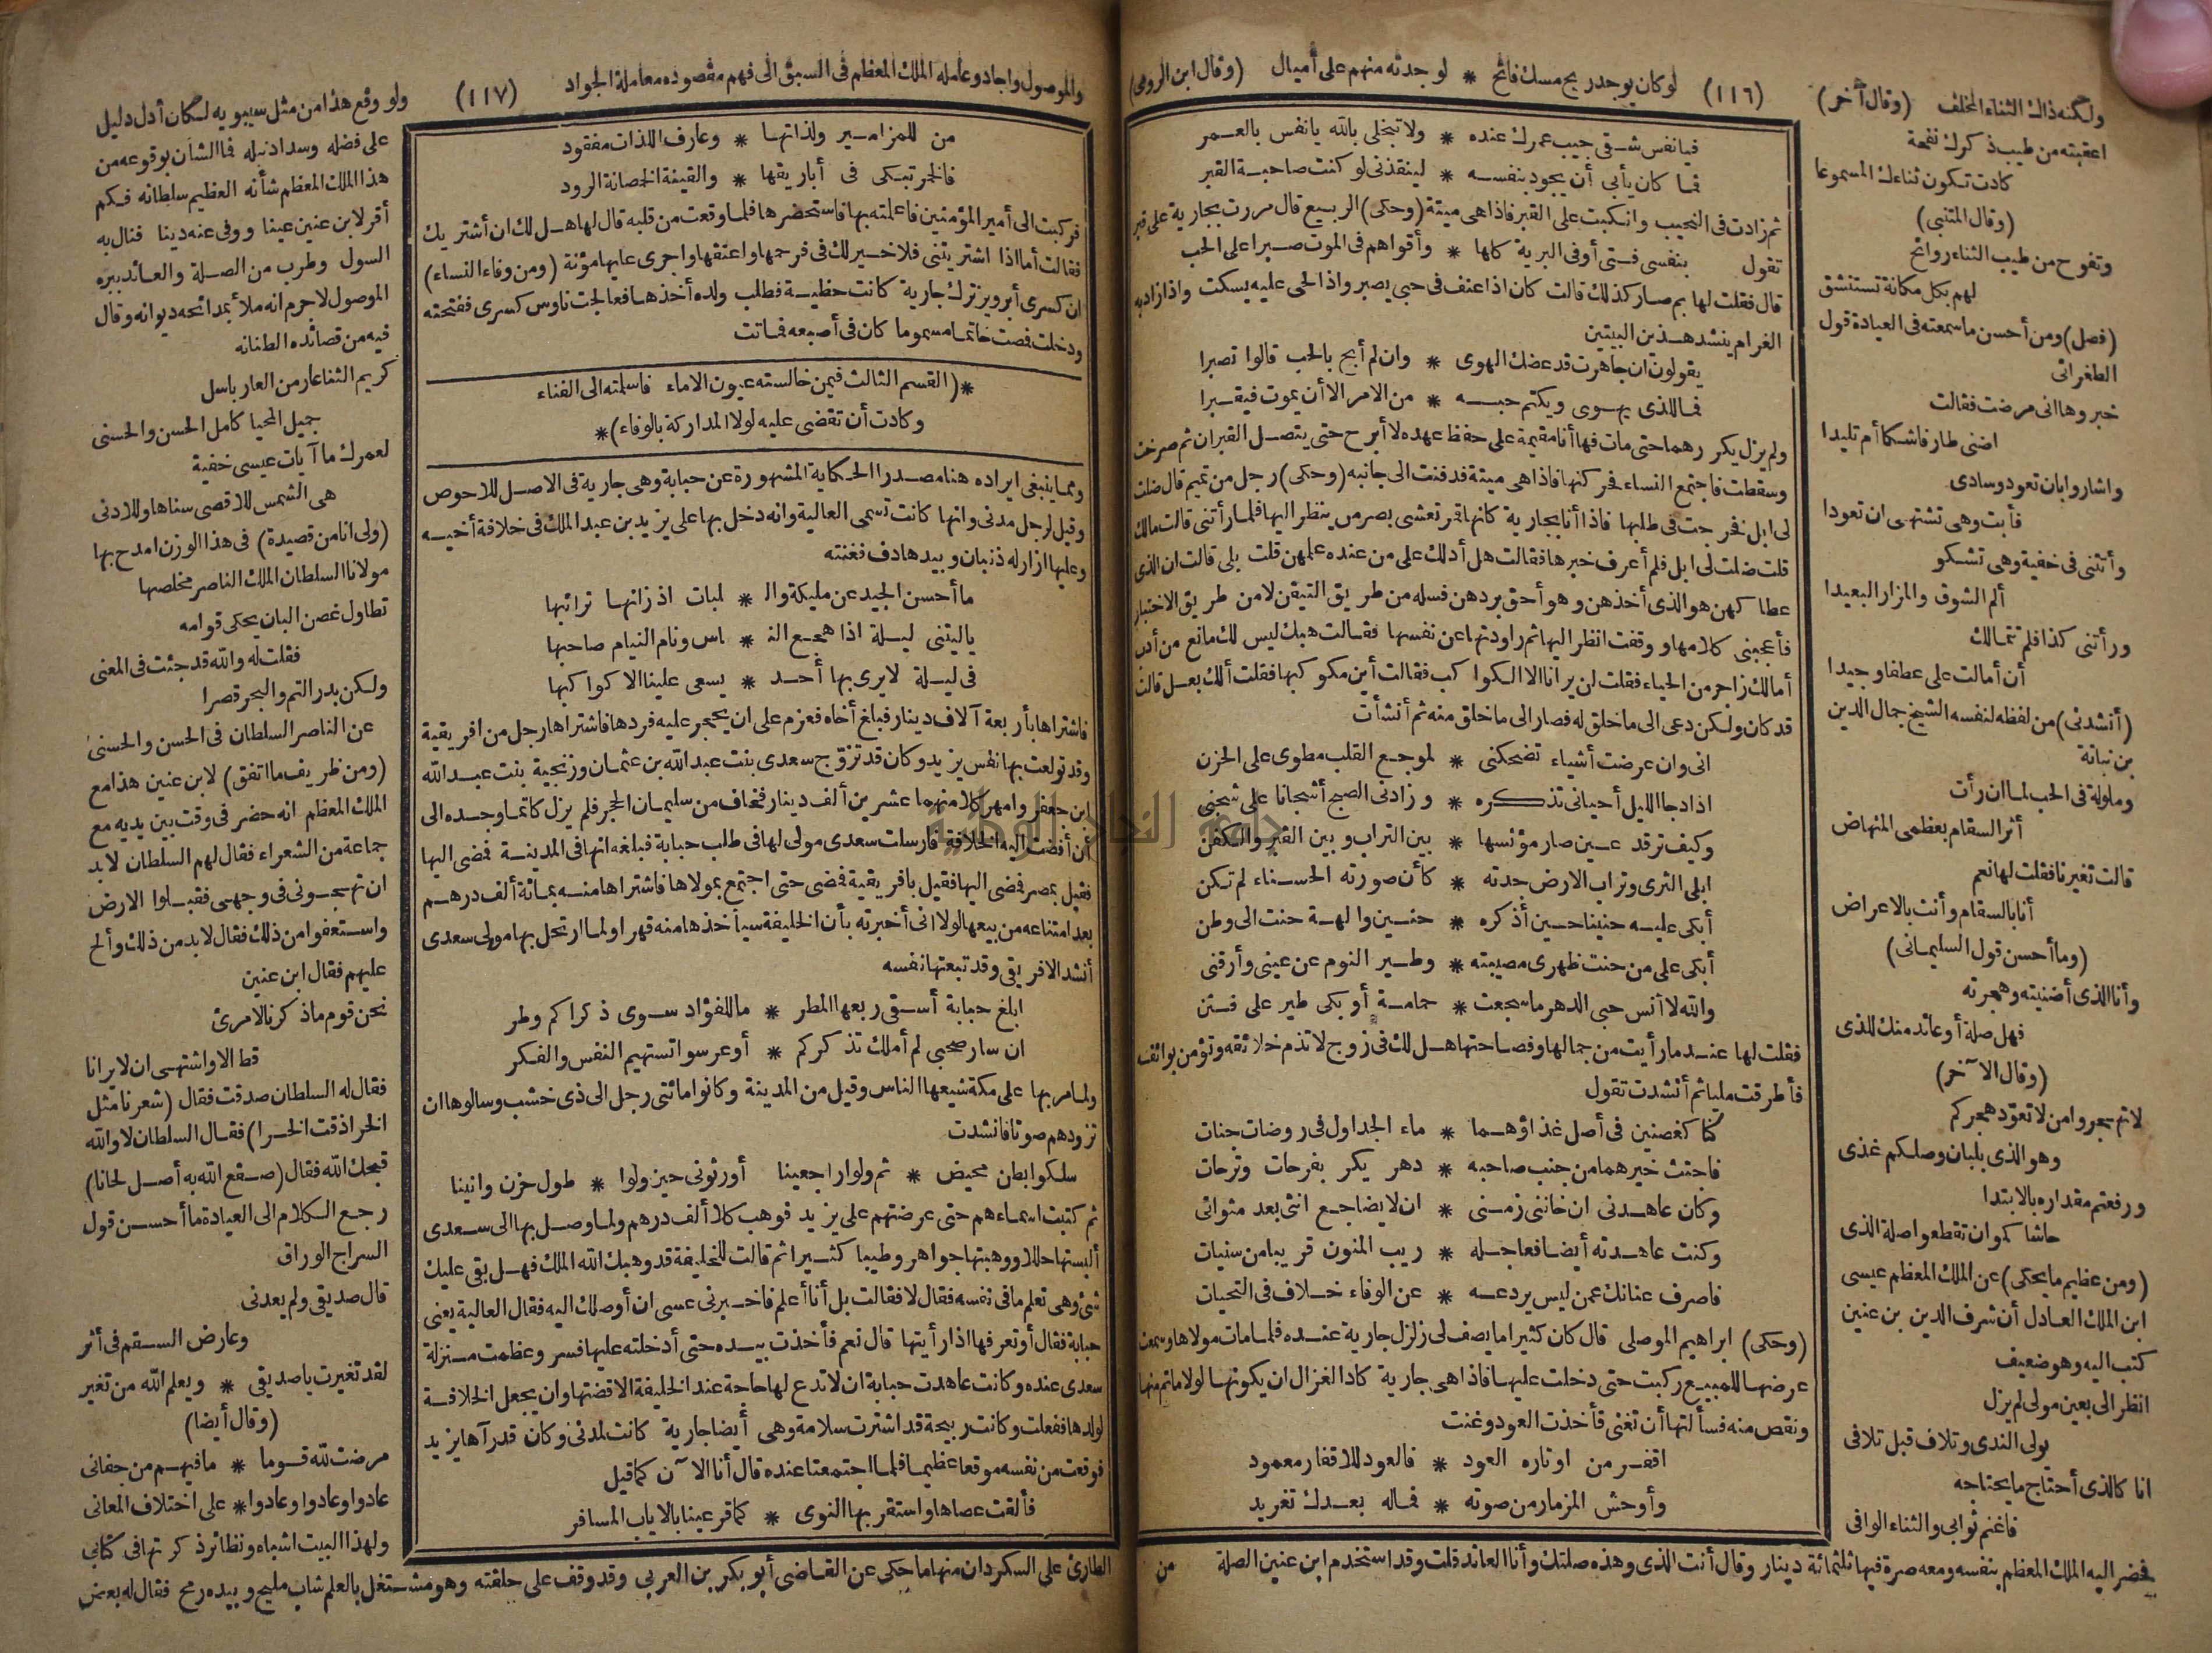 ولكنه ذاك الثناء المخلف (وقال آخر) (١١٦) لو كان يوجد ريح مسك فائح * لو جدته منهم على أميال (وقال ابن الرومى)
اعقبته من طيب ذكرك نفحة
كادت تكون ثناءك المسموعا
(وقال المتنبى)
وتفوح من طيب الثناء روائح
لهم بكل مكانة تستنشق
(فصل) ومن أحسن ما سمعته فى العيادة قول
الطغرائى
خبروها انى مرضت فقالت
اضنى طارفا شكا أم تليدا
واشاروا بان تعود وسادى
فأبت وهى تشتهى ان تعودا
وأتتنى فى خفية وهى تشكو
ألم الشوق والمزار البعيدا
ورأتنى كذا فلم تتمالك
أن أمالت على عطفا وجيدا
(أنشدنى) من لفظه لنفسه الشيخ جمال الدين
بن نباتة
وملولة فى الحب لما ان رأت
أثر السقام بعظمى المنهاض
قالت تغيرنا فقلت لها نعم
أنا بالسقام وأنت بالاعراض
(وما أحسن قول السليمانى)
وأنا الذى أضنيته وهجرته
فهل صلة أو عائد منك للذى
(وقال الآخر)
لاتهجروا من لا تعوّد هجركم
وهو الذى بلبان وصلكم غذى
ورفعتم مقداره بالابتدا
حاشاكمو ان تقطعوا صلة الذى
(ومن عظيم ما يحكى) عن الملك المعظم عيسى
ابن الملك العادل أن شرف الدين بن عنين
كتب اليه وهو ضعيف
انظر الى بعين مولى لم يزل
يولى الندى وتلاف قبل تلافى
انا كالذى أحتاج ما يحتاجه
فاغنم ثوابى والثناء الوافى
فيا نفس شقى جيب عمرك عنده * ولا تبخلى بالله يا نفس بالعمر
فما كان يأبى أن يجود بنفسه * لينقذنى لو كنت صاحبة القبر
ثم زادت فى النحيب وانكبت على القبر فاذا هى ميتة (وحكى) الربيع قال مررت بجارية على قبر
تقول بنفسى فتى أوفى البرية كلها * وأقواهم فى الموت صبرا على الحب
قال فقلت لها بم صار كذلك قالت كان اذا عنف فى حبى يصبر واذا لحى عليه يسكت واذا زاد به
الغرام ينشد هذين البيتين
يقولون ان جاهرت قد عضك الهوى * وان لم أبح بالحب قالوا تصبرا
فما للذى يهوى ويكتم حبه * من الامر الا أن يموت فيقبرا
ولم يزل يكررهما حتى مات فها أنا مقيمة على حفظ عهده لا أبرح حتى يتصل القبران ثم صرخت
وسقطت فاجتمع النساء فحركنها فاذا هى ميتة فدفنت الى جانبه (وحكى) رجل من تميم قال ضلت
لى ابل فخرجت فى طلبها فاذا أنا بجارية كانها قمر تعشى بصر من ينظر اليها فلما رأتنى قالت مالك
قلت ضلت لى ابل فلم أعرف خبرها فقالت هل أدلك على من عنده علمهن قلت بلى قالت ان الذى
عطاكهن هو الذى أخذهن وهو أحق بردهن فسله من طريق التيقن لا من طريق الاختبار
فأعجبنى كلامها ووقفت انظر اليها ثم راودتها عن نفسها فقالت هبك ليس لك مانع من أدب
أمالك زاجر من الحياء فقلت ان يرانا الا الكواكب فقالت أين مكوكبها فقلت ألك بعل قالت
قد كان ولكن دعى الى ما خلق له فصار الى ما خلق منه ثم أنشأت
انى وان عرضت أشياء تضحكنى * لموجع القلب مطوى على الحزن
اذا دجا الليل أحيانى تذكره * وزادنى الصبح أشجانا على شجنى
وكيف ترقد عين صار مؤنسها * بين التراب وبين القبر والكفن
ابلى الثرى وتراب الارض جدته * كأن صورته الحسناء لم تكن
أبكى عليه حنينا حين أذكره * حنين والهة حنت الى وطن
أبكى على من حنت ظهرى مصيبته * وطير النوم عن عينى وأرقنى
والله لا أنس حبى الدهر ما سجعت * حمامة أو بكى طير على فنن
فقلت لها عند ما رأيت من جمالها وفصاحتها هل لك فى زوج لا تذم خلائقه وتؤمن بوائقه
فأطرقت مليا ثم أنشدت تقول
كنا كغصنين فى أصل غذاؤهما * ماء الجداول فى روضات جنات
فاجتث خيرهما من جنب صاحبه * دهر يكر بفرحات وترحات
وكان عاهدنى ان خاننى زمنى * ان لا يضاجع انثى بعد مثواتى
وكنت عاهدته أيضا فعاجله * ريب المنون قريبا من سنيات
فاصرف عنانك عمن ليس يردعه * عن الوفاء خلاف فى التحيات
(وحكى) ابراهيم الموصلى قال كان كثيرا ما يصف لى زلزل جارية عنده فلما مات مولاها وسمعت
عرضها للمبيع ركبت حتى دخلت عليها فاذا هى جارية كاد الغزال ان يكونها لولا ما تم منها
ونقص منه فسألتها أن تغنى فأخذت العود وغنت
اقفر من اوتاره العود * فالعود للاقفار معمود
وأوحش المزمار من صوته * فماله بعدك تغريد
فحضر اليه الملك المعظم بنفسه ومعه صرة فيها ثلثمائة دينار وقال أنت الذى وهذه صلتك وأنا العائد قلت وقد استخدم ابن عنين الصلة من
والموصول واجاد وعامله الملك المعظم فى السبق الى فهم مقصوده معاملة الجواد (١١٧) ولو وقع هذا من مثل سيبويه لكان أدل دليل
من للمزامير ولذاتها * وعارف اللذات مفقود
فالخمر تبكى فى أباريقها * والقينة الخمصانة الرود
فركبت الى أمير المؤمنين فاعلمته بها فاستحضرها فلما وقعت من قلبه قال لها هل لك ان أشتريك
فقالت أما اذا اشتريتنى فلا خير لك فى فرحمها واعتقها واجرى عليها مؤنة (ومن وفاء النساء)
ان كسرى أبرويز ترك جارية كانت حظية فطلب ولده أخذها فعالجت ناوس كسرى ففتحته
ودخلت فمصت خاتما مسموما كان فى أصبعه فماتت
*(القسم الثالث فيمن خالسته عيون الاماء فاسلمته الى الفناء
وكادت أن تقضى عليه لولا المداركة بالوفاء)*
ومما ينبغى ايراده هنا مصدرا الحكاية المشهورة عن حبابة وهى جارية فى الاصل للاحوص
وقيل لرجل مدنى وانها كانت تسمى العالية وانه دخل بها على يزيد بن عبد الملك فى خلافة أخيه
وعليها ازار له ذنبان وبيدها دف فغنته
ما أحسن الجيد من مليكة وال * لبات اذ زانها ترائبها
ياليتنى ليلة اذا هجع الن * اس ونام النيام صاحبها
فى ليلة لا يرى بها أحد * يسعى علينا الا كواكبها
فاشتراها بأربعة آلاف دينار فبلغ أخاه فعزم على ان يحجر عليه فردها فاشتراها رجل من افريقية
وقد تولعت بها نفس يزيد وكان قد تزوّج سعدى بنت عبد الله بن عثمان وزنجية بنت عبد الله
ابن جعفر وامهر كلا منهما عشرين ألف دينار فخاف من سليمان الحجر فلم يزل كاتما وجده الى
أن أفضت اليه الخلافة فأرسلت سعدى مولى لها فى طلب حبابة فبلغه انها فى المدينة فمضى اليها
فقيل بمصر فمضى اليها فقيل بافريقية فمضى حتى اجتمع بمولاها فاشتراها منه بمائة ألف درهم
بعد امتناعه من بيعها لولا انى أخبرته بأن الخليفة سيأخذها منه قهرا ولما ارتحل بها مولى سعدى
أنشد الافريقى وقد تبعتها نفسه
ابلغ حبابة أسقى ربعها المطر * ما للفؤاد سوى ذكراكم وطر
ان سار صحبى لم أملك تذكركم * أو عرسوا تستهيم النفس والفكر
ولما مر بها على مكة شيعها الناس وقيل من المدينة وكانوا مائتى رجل الى ذى خشب وسالوها ان
تزودهم صوتا فانشدت
سلكوا بطن محيض * ثم ولوا راجعينا أورثونى حين ولوا * طول حزن وانينا
ثم كتبت اسماءهم حتى عرضتهم على يزيد فوهب كلا ألف درهم ولما وصل بها الى سعدى
ألبستها حللا ووهبتها جواهر وطيبا كثيرا ثم قالت للخليفة قد وهبك الله الملك فهل بقى عليك
شئ وهى تعلم ما فى نفسه فقال لا فقالت بل أنا أعلم فاخبرنى عسى ان أوصلك اليه فقال العالية يعنى
حبابة فقال أو تعرفها اذا رأيتها قال نعم فأخذت بيده حتى أدخلته عليها فسر وعظمت منزلة
سعدى عنده وكانت عاهدت حبابة ان لا تدع لها حاجة عند الخليفة الا قضتها وان يجعل الخلافة
لولدها ففعلت وكانت ربيحة قد اشترت سلامة وهى أيضا جارية كانت لمدنى وكان قد رآها يزيد
فوقعت من نفسه موقعا عظيما فلما اجتمعتا عنده قال أنا الآن كما قيل
فألقت عصاها واستقر بها النوى * كما قر عينا بالاياب المسافر
على فضله وسداد نبله فما الشان بوقوعه من
هذا الملك المعظم شأنه العظيم سلطانه فكم
أقر لابن عنين عينا ووفى عنه دينا فنال به
السول وطرب من الصلة والعائد ببره
الموصول لاجرم انه ملأ بمدائحه ديوانه وقال
فيه من قصائده الطنانه
كريم الثنا عار من العار باسل
جميل المحيا كامل الحسن والحسنى
لعمرك ما آيات عيسى خفية
هى الشمس للاقصى سناها وللادنى
(ولى انا من قصيدة) فى هذا الوزن امدح بها
مولانا السلطان الملك الناصر مخلصها
تطاول غصن البان يحكى قوامه
فقلت له والله قد جئت فى المعنى
ولكن بدر التم والبحر قصرا
عن الناصر السلطان فى الحسن والحسنى
(ومن ظريف ما اتفق) لابن عنين هذا مع
الملك المعظم انه حضر فى وقت بين يديه مع
جماعة من الشعراء فقال لهم السلطان لا بد
ان تهجونى فى وجهى فقبلوا الارض
واستعفوا من ذلك فقال لا بد من ذلك وألح
عليهم فقال ابن عنين
نحن قوم ما ذكرنا لامرئ
قط الا واشتهى ان لا يرانا
فقال له السلطان صدقت فقال (شعرنا مثل
الخر اذقت الخرا) فقال السلطان لا والله
قبحك الله فقال (صقع الله به أصل لحانا)
رجع الكلام الى العيادة ما أحسن قول
السراج الوراق
قال صديقى ولم يعدنى
وعارض السقم فى أثر
لقد تغيرت يا صديقى * ويعلم الله من تغير
(وقال أيضا)
مرضت لله قوما * ما فيهم من جفانى
عادوا وعادوا وعادوا * على اختلاف المعانى
ولهذا البيت اشباه ونظائر ذكرتها فى كتابى
الطارئ على السكردان منها ما حكى عن القاضى أبو بكر بن العربى وقد وقف على حلقته وهو مشتغل بالعلم شاب مليح وبيده رمح فقال له بعض